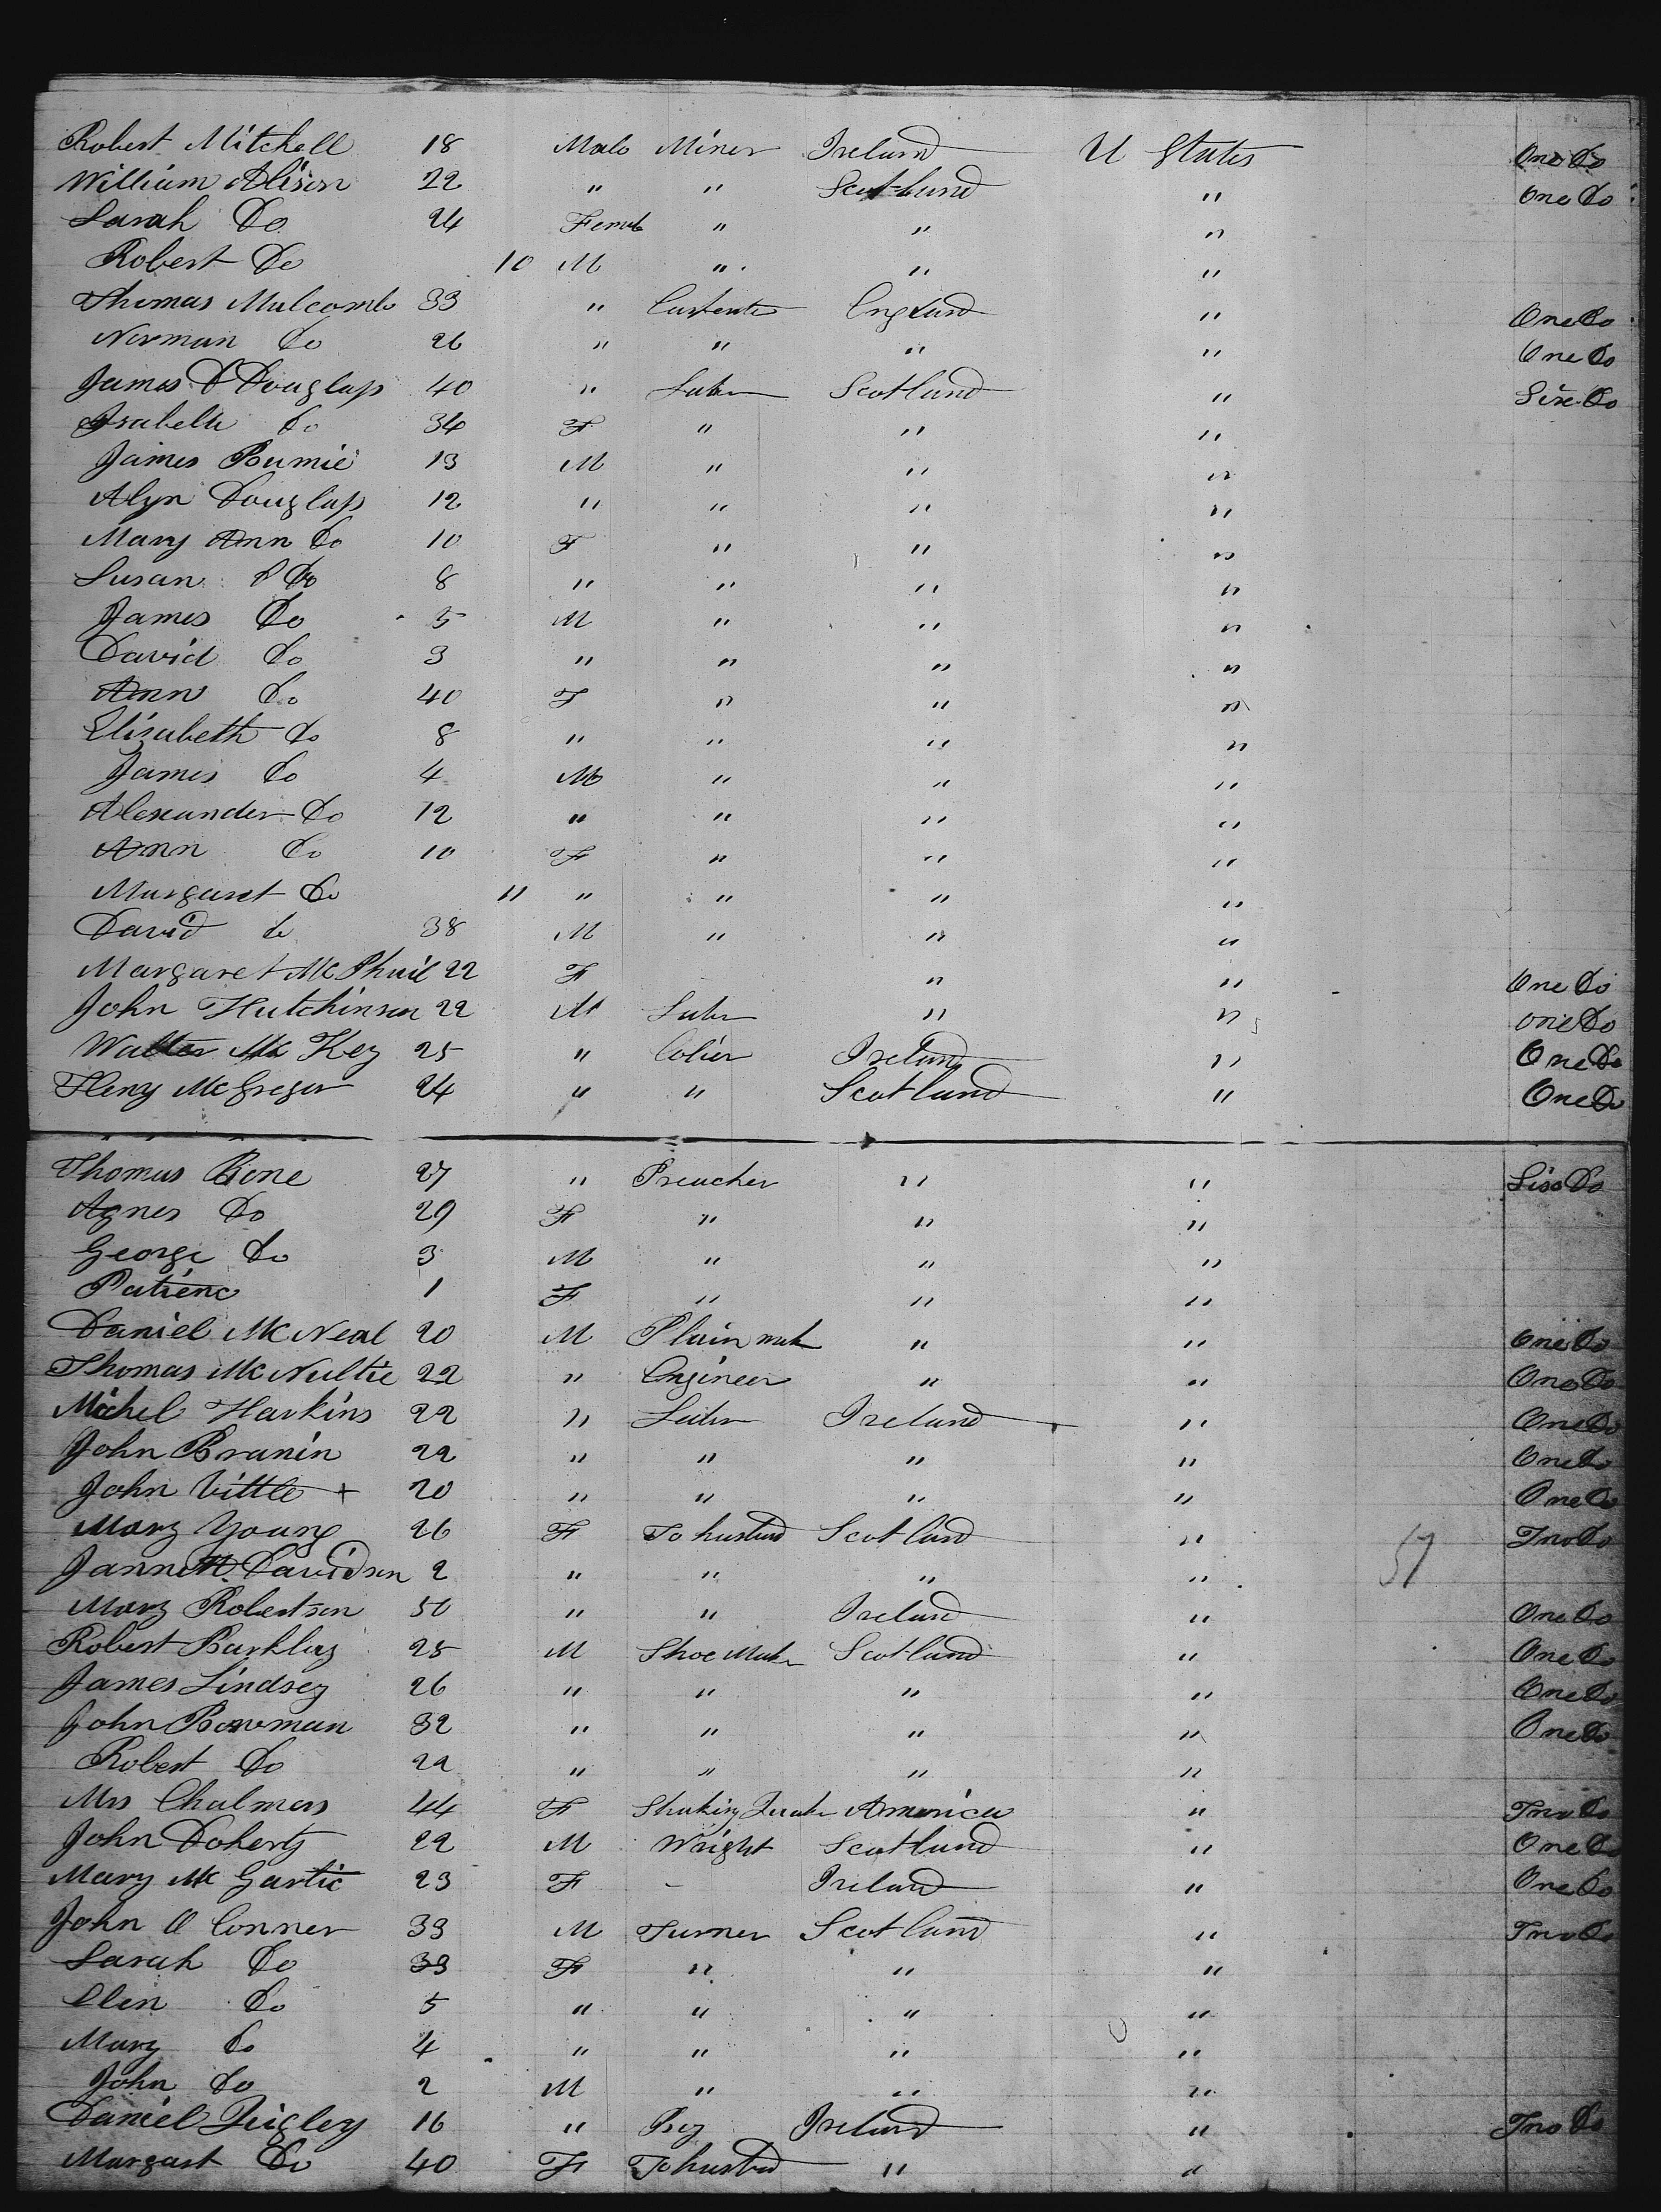 Robert Mitchell 18 Male Miner Ireland U States One Do
William Alison 22 " " Scotland " One Do
Sarah Do 24 Female " " "
Robert Do 10 M " " "
Thomas Malcomb 33 " Carpenter England " One Do
Norman Do 26 " " " " One Do
James D Douglass 40 " Labr Scotland " Six Do
Isabella Do 34 F " " "
James 13 M " " "
Alyn Douglass 12 " " " "
Mary Ann Do 10 F " " "
Susan Do 8 " " " "
James Do 5 M " " "
David Do 3 " " " "
Ann Do 40 F " " "
Elizabeth Do 8 " " " "
James Do 4 M " " "
Alexander Do 12 " " " "
Ann Do 10 F " " "
Margaret Do 11 " " " "
David do 38 M " " "
Margaret McPhail 22 F " " One Do
John Hutchinson 22 M Labr " " One Do
Walter Mc Key 25 " Colier Ireland " One Do
Heny McGregor 24 " " Scotland " One Do
Thomas Bone 27 " Preacher " " Six Do
Agnes Do 29 F " " "
George Do 3 M " " "
Patienc 1 F " " "
Daniel McNeal 20 M Plain mak " " One Do
Thomas McNultie 22 " Engineer " " One Do
Michel Harkins 22 " Labr Ireland " One Do
John Branin 22 " " " " One Do
John Little + 20 " " " " One Do
Mary Young 26 F To husband Scotland " Two Do
Jannett Davidson 2 " " " " 57
Mary Robertson 50 " " Ireland " One Do
Robert Barklay 25 M Shoe Makr Scotland " One Do
James Lindsey 26 " " " " One Do
John Bowman 32 " " " " One Do
Robert Do 22 " " " "
Mrs Chalmers 44 F Shaking Quaker America " Two Do
John Doherty 22 M Wright Scotland " One Do
Mary Mc Gartie 23 F - Ireland " One Do
John O Conner 33 M Turner Scotland " Two Do
Sarah Do 33 F " " "
Elen Do 5 " " " "
Mary Do 4 " " " "
John Do 2 M " " "
Daniel Quigley 16 " Boy Ireland " Two Do
Margaret Do 40 F To husbad " "